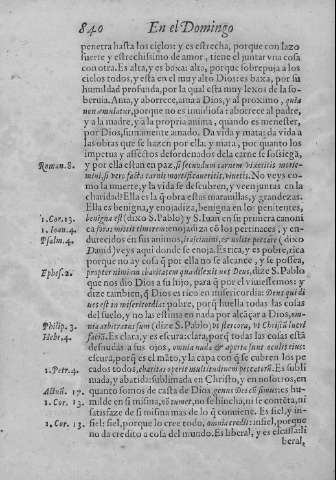 840 En el Domingo
penetra hasta los cielos: y es estrecha, porque con lazo
fuerte y estrechissimo de amor, tiene el juntar vna cosa
con otra. Es alta, y es baxa: alta, porque sobrepuja a los
cielos todos, y està en el muy alto Dios: es baxa, por su
humildad profunda, por la qual està muy lexos de la so-
beruia. Ama, y aborrece, ama a Dios, y al proximo, quia
non emulatur, porque no es imbidiosa: aborrece al padre,
y a la madre, y a la propria anima, quando es menester,
por Dios, sumamente amado. Da vida y mata: da vida a
las obras que se hazen por ella, y mata, por quanto los
impetus y afectos desordenados de la carne se sossiega,
Roman. 8. y por ella estan en paz, si secundum carnem vixeritis morie-
mini, si vero facta carnis mortificaueritis, viuetis. No veys co-
mo la muerte, y la vida se descubren, y veen juntas en la
charidad? Ella es la q̃ obra estas marauillas, y grandezas.
Ella es benigna, y enojadiza, benigna en los penitentes,
1. Cor. 13. benigna est (dixo S. Pablo) y S. Iuan en su primera canoni
1. Ioan. 4. ca foras mittit timorem: enojadiza cõ los pertinaces, y en-
Psalm. 4. durecidos en sus animos, irascimini, & nolite peccare (dixo
Dauid) veys aqui donde se enoja. Es rica, y es pobre, rica
porque no ay cosa q̃ por ella no se alcance, y se possea,
Ephes. 2. propter nimiam charitatem qua dilexit nos Deus, dize S. Pablo
que nos dio Dios a su hijo, para q̃ por el viuiessemos: y
dize tambien, q̃ Dios es rico en misericordia: Deus qui di
ues est in misericordia: pobre, porq̃ huella todas las cosas
del suelo, y no las estima en nada por alcãçar a Dios, om-
Philip. 3. nia arbitratus sum (dize S. Pablo) vt stercora, vt Christũ lucri
Hebr. 4. faciã. Es clara, y es escura: clara, porq̃ todas las cosas està
desnudas a sus ojos, omnia nuda & aperta sunt oculis eius:
escura, porq̃ es el mãto, y la capa con q̃ se cubren los pe
1. Petr. 4. cados todos, charitas operit multitudinem peccatorũ. Es subli
mada, y abatida: sublimada en Christo, y en nosotros, en
Actuũ. 17. quanto somos de casta de Dios genus Dei cũ simus: es hu-
1. Cor. 13. milde en si misma, nõ tumet, no se hincha, ni se contẽta, ni
satisfaze de si misma mas de lo q̃ conuiene. Es fiel, y in-
1. Cor. 13. fiel: fiel, porque lo cree todo, omnia credit: infiel, porque
no da credito a cosa del mundo. Es liberal, y es escassa: li
beral,